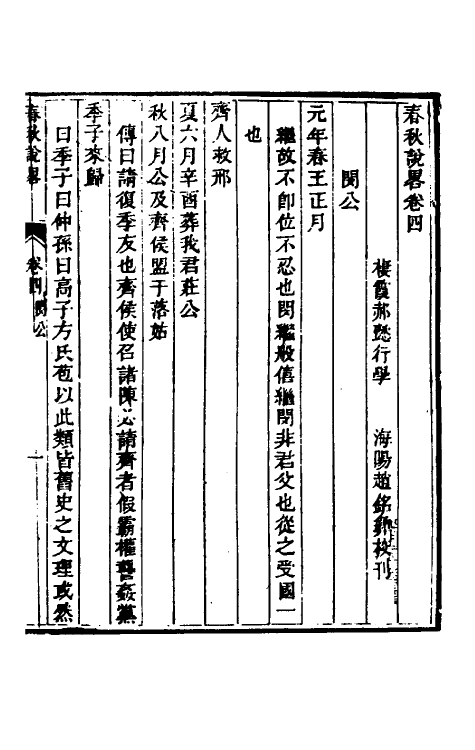 春秋說畧卷四
棲霞郝懿行學　海陽趙銘彝校刊
閔公
元年春王正月
繼故不卽位不忍也閔繼般僖繼閔非君父也從之受國一
也
齊人救邢
夏六月辛酉葬我君莊公
秋八月公及齊侯盟于落姑
傳曰請復季友也齊侯使召諸陳必請齊者假霸權讋姦黨
季子來歸
曰季子曰仲孫曰高子方氏苞以此類皆舊史之文理或然
春秋說畧
卷四閔公
一